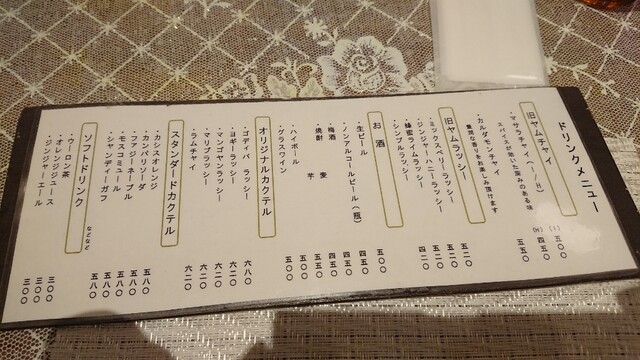 ドリンクメニュー
旧ヤムチャイ
・マサラチャイ(I/H)
(I)五〇〇
(H)四五〇
スパイスが効いた深みのある味
・カルダモンチャイ 五五〇
豊潤な香りをお楽しみ頂けます
旧ヤムラッシー
・ミックスベリーラッシー 五二〇
・ジンジャーハニーラッシー 五五〇
・蜂蜜ライムラッシー 五二〇
・シンプルラッシー 四二〇
お酒
・生ビール 五〇〇
・ノンアルコールビール(瓶) 四五〇
・梅酒 四五〇
・焼酎 麦 四五〇
芋 五五〇
・ハイボール 五〇〇
・グラスワイン 五〇〇
オリジナルカクテル
・ゴディバ ラッシー 六八〇
・ヨギーラッシー 六二〇
・マンゴヤンラッシー 六二〇
・マリブラッシー 六二〇
・ラムチャイ 六二〇
スタンダードカクテル
・カシスオレンジ 五八〇
・カンパリソーダ 五八〇
・ファジーネーブル 五八〇
・モスコミュール 五八〇
・シャンディーガフ 五八〇
ソフトドリンク
などなど
・ウーロン茶 三〇〇
・オレンジジュース 三〇〇
・ジンジャーエール 三〇〇